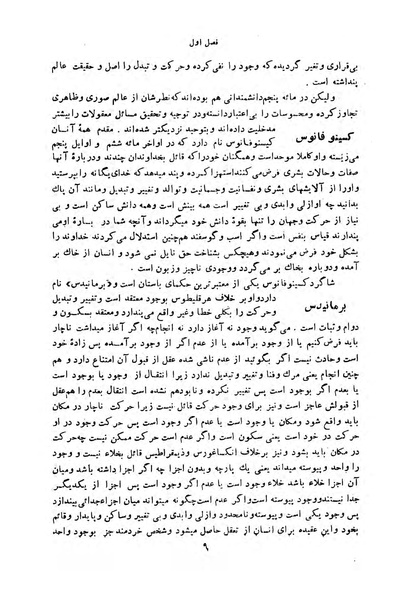 فصل اول
بی‌قراری وتغیر گردیده که وجود را نفی کرده وحرکت و تبدل را اصل و حقیقت عالم
پنداشته است .
ولیکن در مائه پنجم دانشمندانی هم بوده‌اند که نظرشان از عالم صوری وظاهری
تجاوز کرده و محسوسات را بی‌اعتبار دانسته ودر توجیه وتحقیق مسائل معقولات را بیشتر
مدخلیت داده‌اند وبتوحید نزدیکتر شده‌اند . مقدم همهٔ آنان
کسینوفانوس
کسینوفانوس نام دارد که در اواخر مائه ششم و اوایل پنجم
می‌زیسته و او کاملا موحد است وهمگنان خود را که قائل بخداوندان چندند ودربارهٔ آنها
صفات وحالات بشری فرض می‌کنند استهزا کرده و پند میدهد که خدای یگانه را بپرستید
و او را از آلایشهای بشری ونفسانیت وجسمانیت و توالد و تغییر وتبدیل ومانند آن پاک
بدانید چه او ازلی وابدی بی تغییر است همه بینش است وهمه دانش ساکن است و بی
نیاز از حرکت وجهان را تنها بقوهٔ دانش خود میگرداند و آنچه شما در بارهٔ او می
پندارند قیاس بنفس است واگر اسب و گوسفند هم‌چنین استدلال می‌کردند خداوند را
بشکل خود فرض می‌نمودند وهیچکس بشناخت حق نایل نمی شود و انسان از خاک بر
آمده ودوباره بخاک بر می‌گردد ووجودی ناچیز و زبون است .
شاگرد کسینوفانوس یکی از معتبرترین حکمای باستان است و «برمانیدس» نام
برمانیدس
دارد واو بر خلاف هرقلیطوس بوجود معتقد است وتغییر و تبدیل
وحرکت را بکلی خطا وغیر واقع می‌پندارد ومعتقد بسکون و
دوام وثبات است . می‌گوید وجود نه آغاز دارد نه انجام چه اگر آغاز میداشت ناچار
باید فرض کنیم یا از وجود برآمده یا از عدم اگر از وجود بر آمده پس زادهٔ خود
است وحادث نیست اگر بگوئید از عدم ناشی شده عقل از قبول آن امتناع دارد و هم
چنین انجام یعنی مرگ وفنا وتغییر وتبدیل ندارد زیرا انتقال از وجود یا بوجود است
یا بعدم اگر بوجود است پس تغییر نکرده ونابود هم نشده است انتقال بعدم را هم عقل
از قبولش عاجز است ونیز برای وجود حرکت قائل نیست زیرا حرکت ناچار در مکان
باید واقع شود ومکان یا وجود است یا عدم اگر وجود است پس حرکت وجود در او
حرکت در خود است یعنی سکون است واگر عدم است حرکت ممکن نیست چه حرکت
در مکان باید بشود ونیز برخلاف انکساغورس وذیمقراطیس قائل بخلاء نیست و وجود
را واحد و پیوسته میداند یعنی یک پارچه وبدون اجزا چه اگر اجزا داشته باشد ومیان
آن اجزا خلاء باشد خلاء وجود است یا عدم اگر وجود است پس اجزا از یکدیگر
جدا نیستند ووجود پیوسته است واگر عدم است چگونه میتواند میان اجزا جدائی بیندازد
پس وجود یکی است و پیوسته ونامحدود وازلی وابدی وبی تغییر وساکن وپایدار وقائم
بخود واین عقیده برای انسان از تعقل حاصل میشود وشخص خردمند جز بوجود واحد
۹